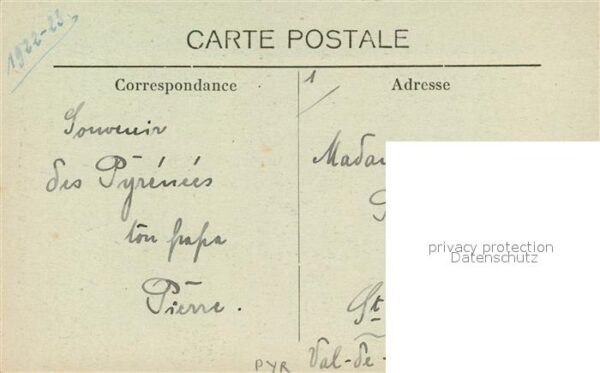 1922-23
CARTE POSTALE
Correspondance
Souvenir
des Pyrénées
ton papa
Pierre.
1
Adresse
Mada
St
Val-de-
PYR
privacy protection
Datenschutz